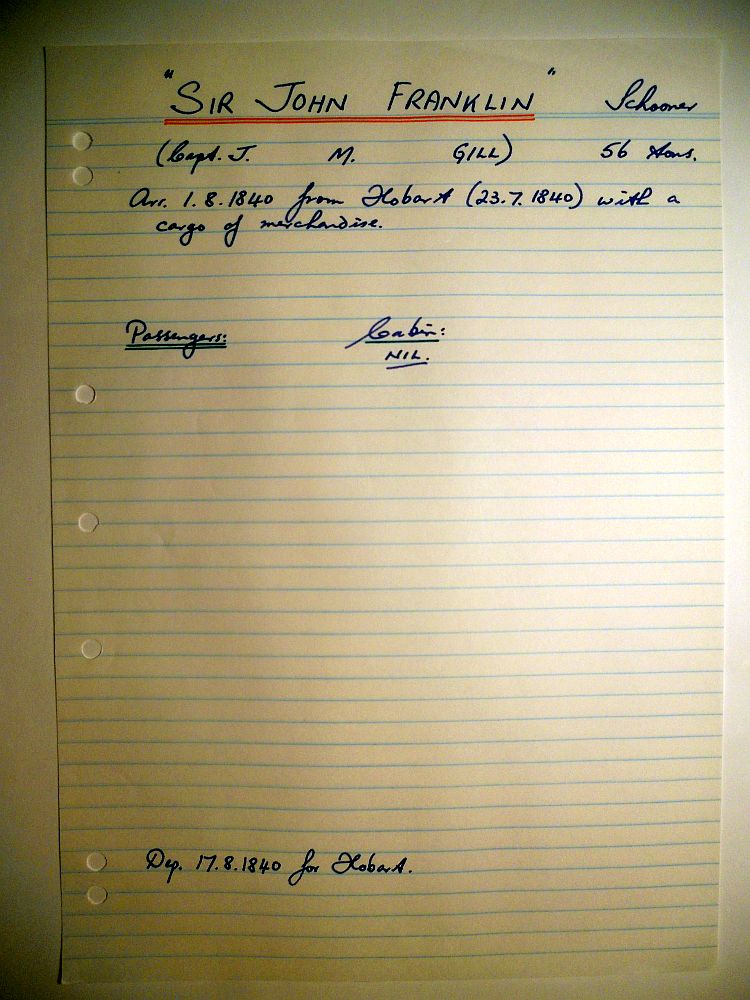 "SIR JOHN FRANKLIN" Schooner
(Capt. J. M. GILL) 56 tons.
Arr. 1.8.1840 from Hobart (23.7.1840) with a
cargo of merchandise.
Passengers: Cabin:
NIL.
Dep. 17.8.1840 for Hobart.